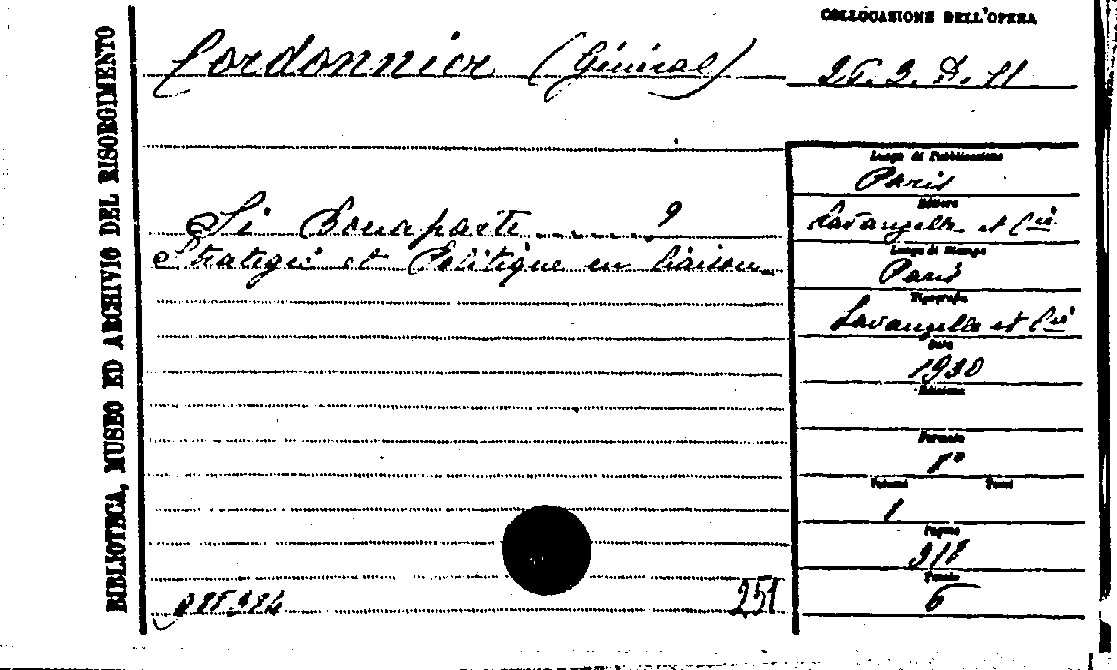 COLLOCAZIONE DELL'OPERA
Cordonnier (Général)
BIBLIOTECA, MUSEO ED ARCHIVIO DEL RISORGIMENTO
Si Bonaparte.......?
Stratégie et Politique en liaison
Luogo di Pubblicazione
Paris
Editore
Lavauzelle et Cie
Luogo di Stampa
Paris
Tipografia
Lavauzelle et Cie
Data
1930
Edizione
Formato
8°
Volumi
1
Pagine
Tavole
6
251